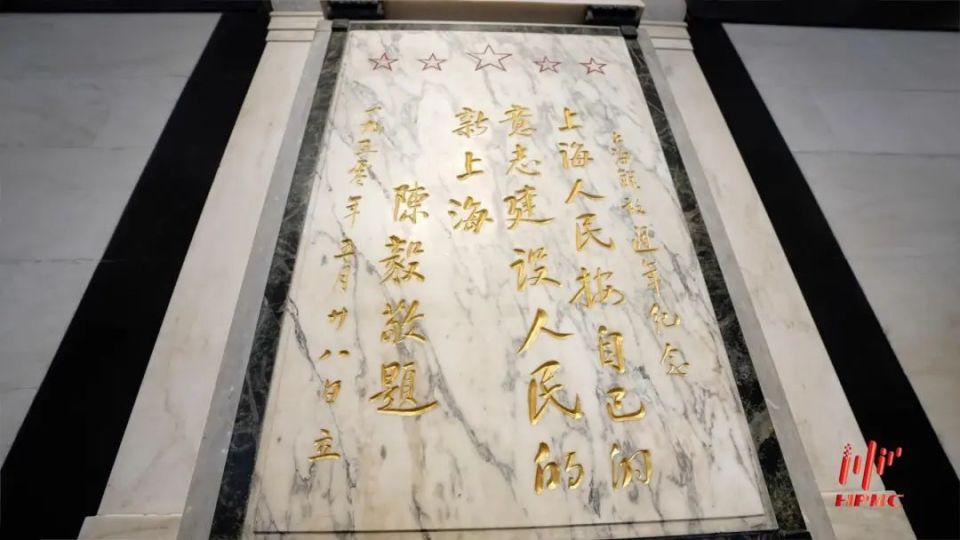 上海解放週年纪念
上海人民按自己的
意志建设人民的
新上海
陳毅敬題
一九五零年五月廿八日立
HPMC